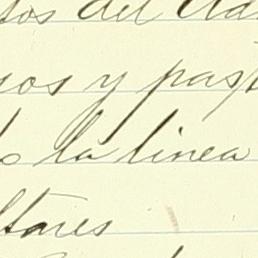 tos del
sos y past
la linea
ltares